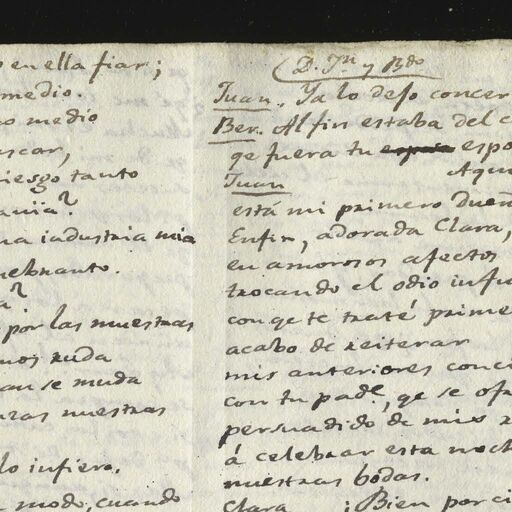 en ella fiar;
medio.
medio
uscar,
riesgo tanto
ania?
na industria mia
nebranto.
a?
por las muestras
mos ruda
an se muda
zas nuestras
lo infiero.
modo, cuando
D. Jn. y Bdo
Juan. Ya lo dejo concer
Ber. Al fin estaba del c
qe fuera tu espo
Juan Aqui
está mi primero Dueñ
Enfin, adorada Clara,
en amorosos afectos
trocando el odio infu
con qe te traté prime
acabo de reiterar
mis anteriores conci
con tu pade, qe se ofr
persuadido de mis r
á celebrar esta noch
nuestras bodas.
Clara ¡Bien por ci